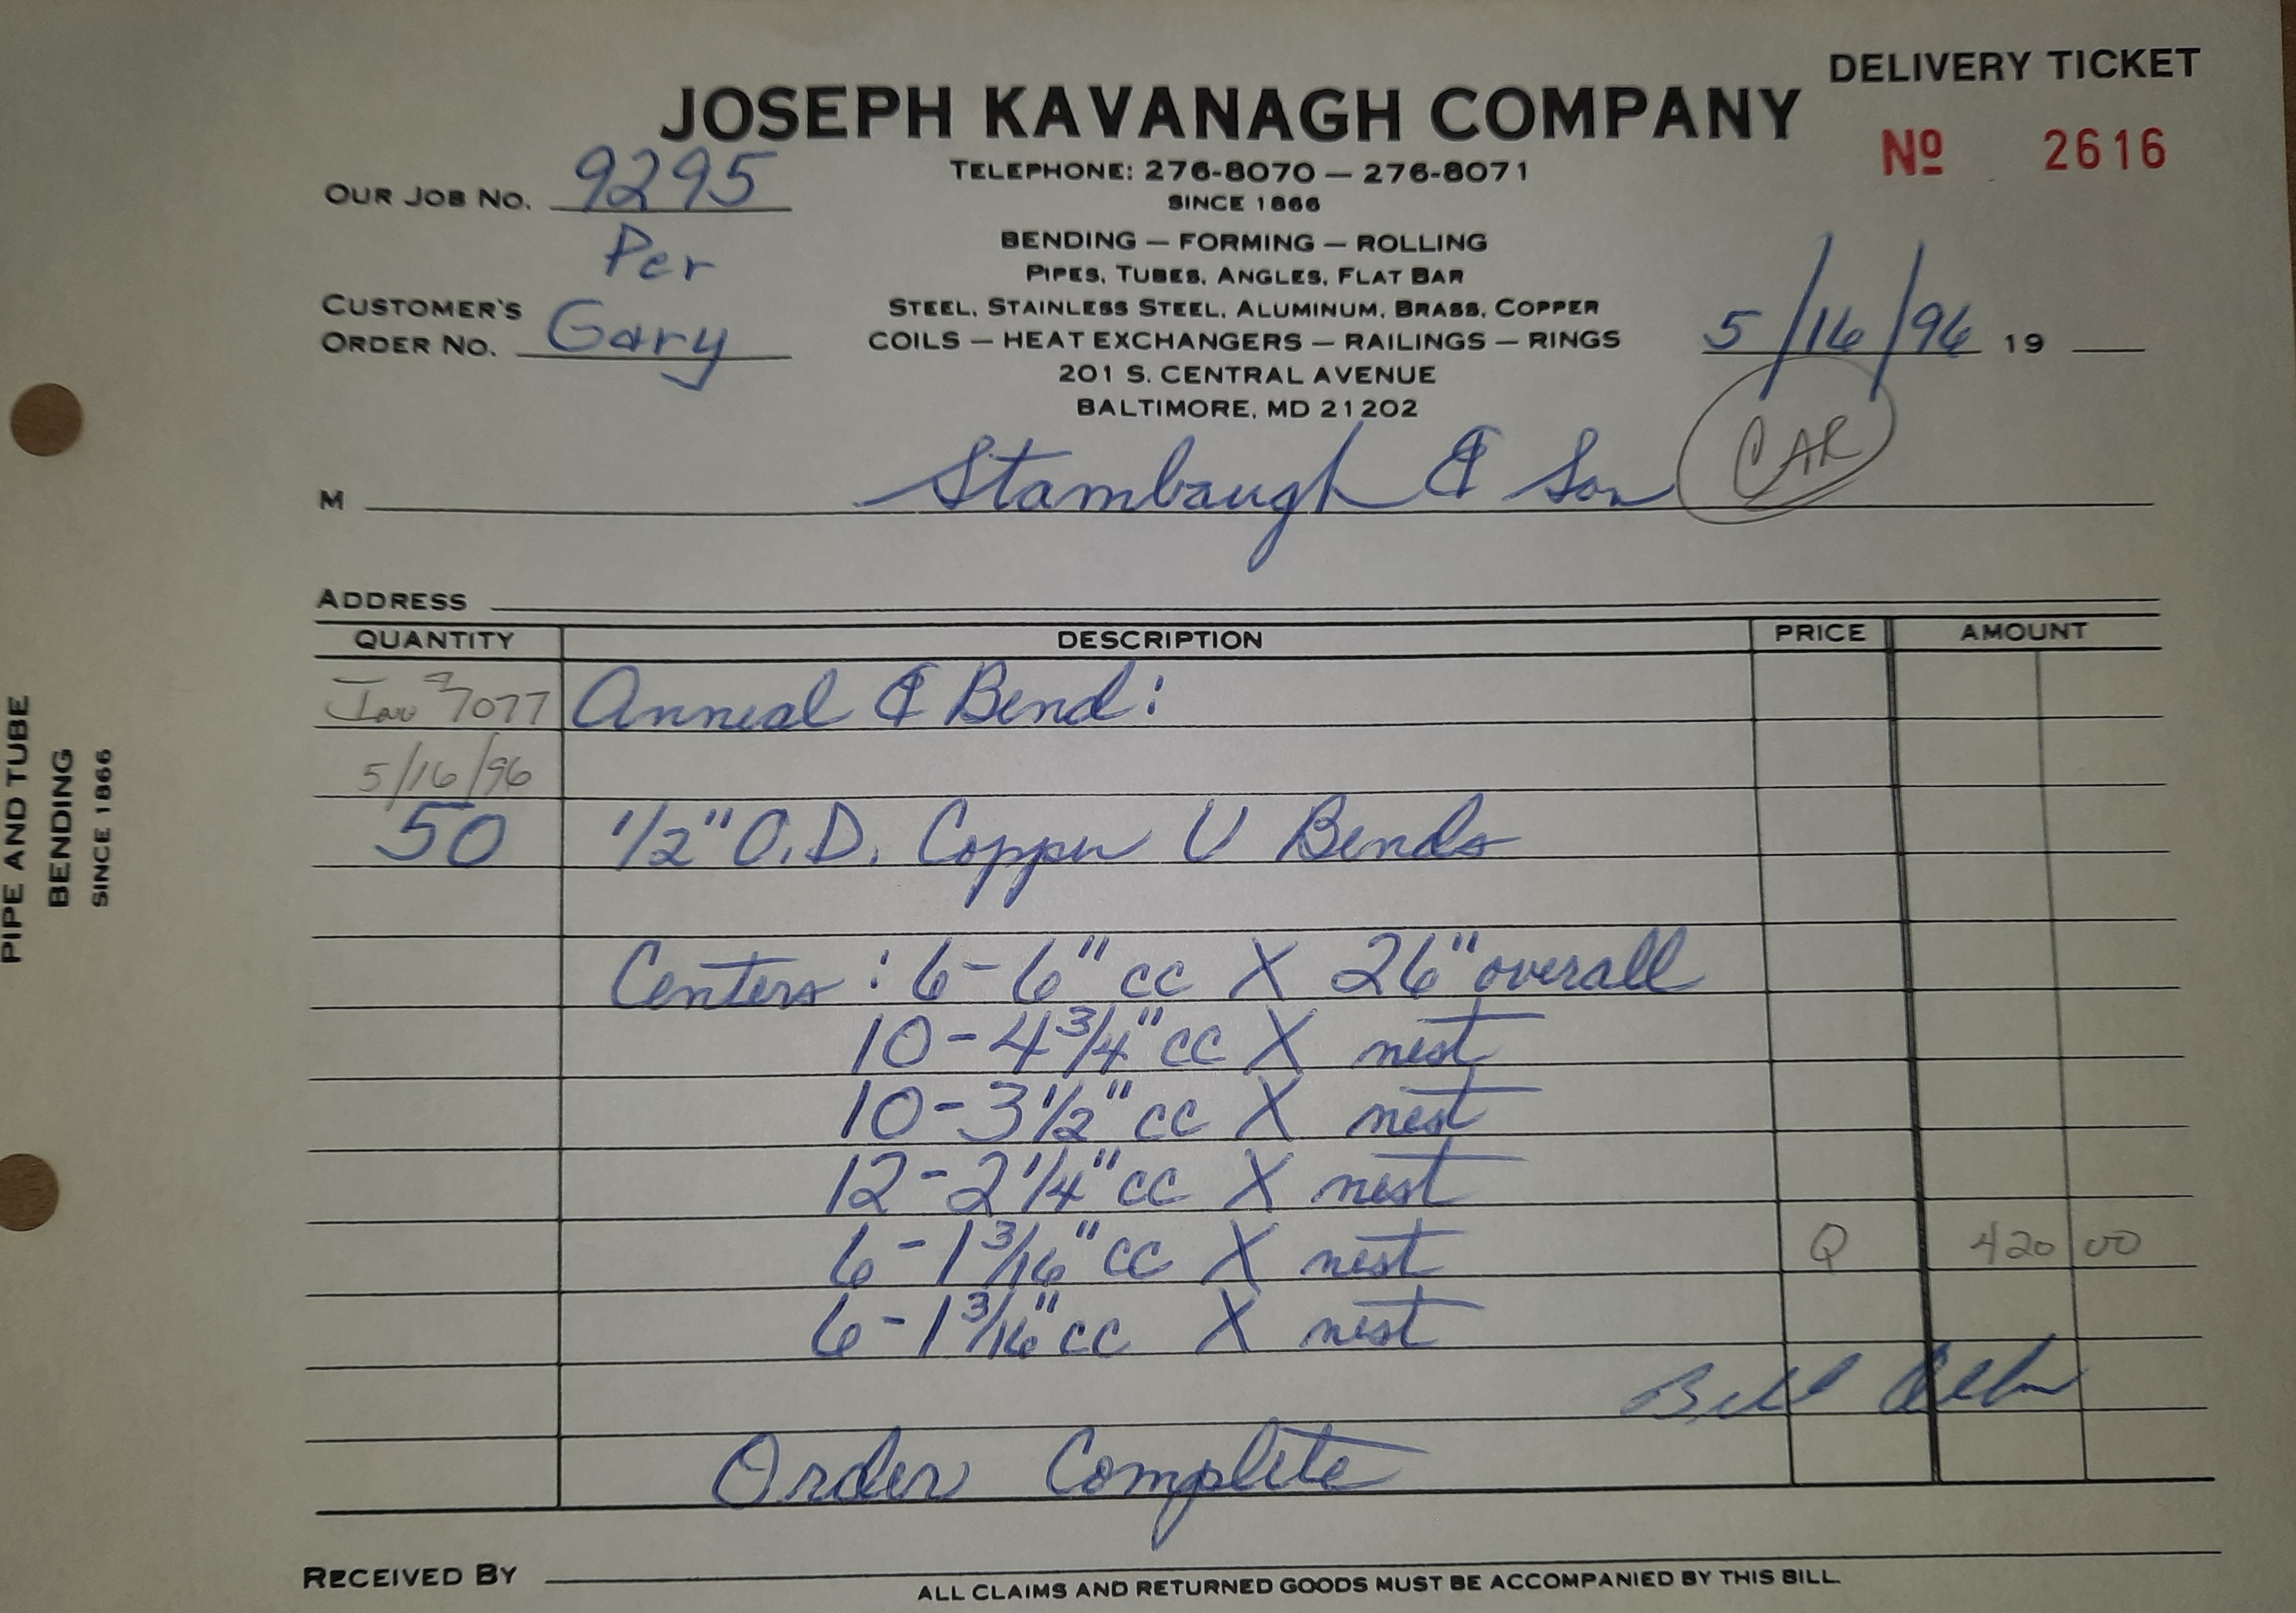 DELIVERY TICKET
JOSEPH KAVANAGH COMPANY
No 2616
TELEPHONE: 276-8070 — 276-8071
OUR JOB NO. 9295
SINCE 1866
Per
BENDING — FORMING — ROLLING
PIPES, TUBES, ANGLES, FLAT BAR
STEEL, STAINLESS STEEL, ALUMINUM, BRASS, COPPER
CUSTOMER'S
ORDER NO. Gary
COILS — HEAT EXCHANGERS — RAILINGS — RINGS
5/16/96 19
201 S. CENTRAL AVENUE
BALTIMORE, MD 21202
CAR
M Stambaugh & Son
ADDRESS
QUANTITY DESCRIPTION PRICE AMOUNT
Inv # 7077 Anneal & Bend:
5/16/96
50 1/2" O.D. Copper U Bends
Centers: 6-6" cc X 26" overall
10-4 3/4" cc X nest
10-3 1/2" cc X nest
12-2 1/4" cc X nest
6-1 3/16" cc X nest Q 420 00
6-1 3/16" cc X nest
Bill
Order Complete
RECEIVED BY
ALL CLAIMS AND RETURNED GOODS MUST BE ACCOMPANIED BY THIS BILL.
PIPE AND TUBE
BENDING
SINCE 1866